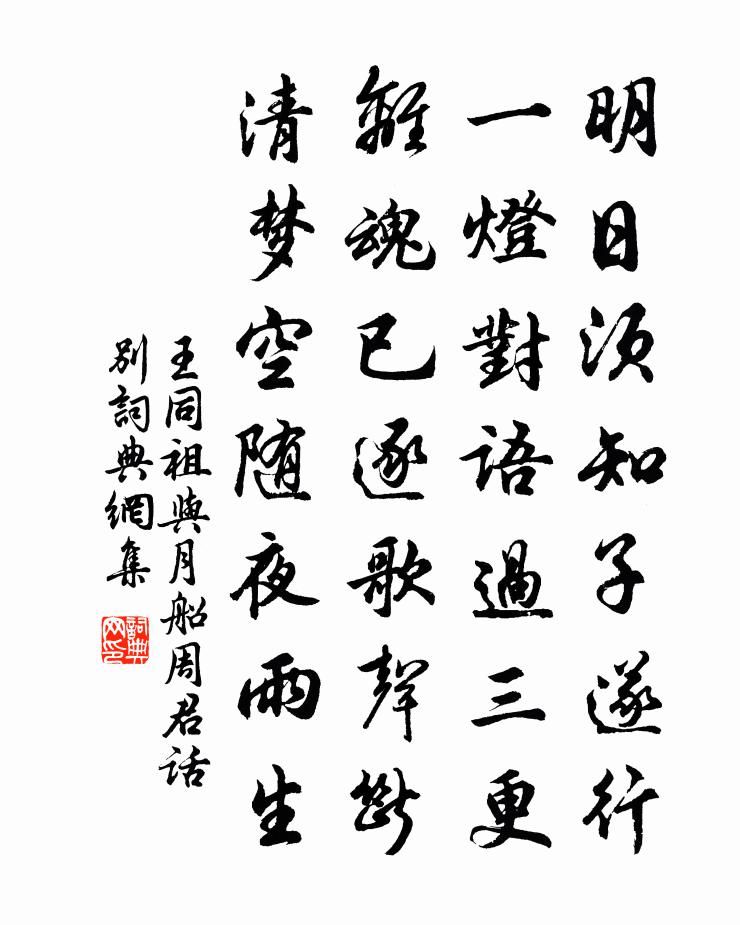 明日须知子遂行
一燈對語過三更
離魂已逐歌聲断
清梦空随夜雨生
王同祖與月船周君话
别詞典網集
詞典网印